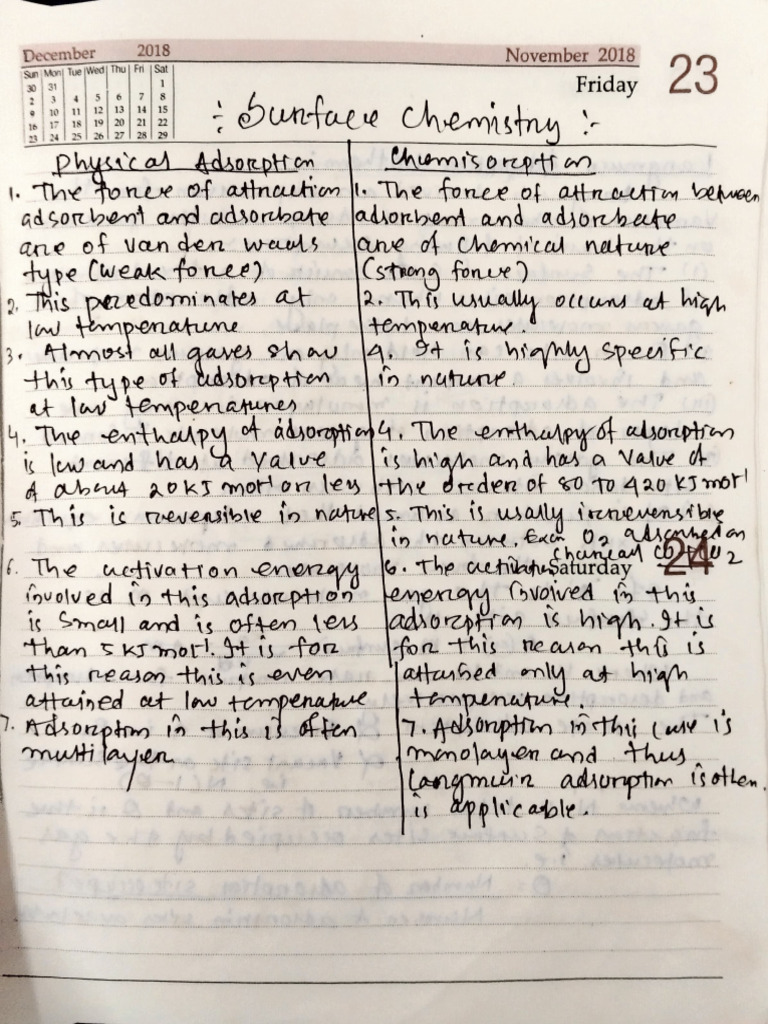 December 2018
November 2018
Friday 23
Sun Mon Tue Wed Thu Fri Sat
30 31 1
2 3 4 5 6 7 8
9 10 11 12 13 14 15
16 17 18 19 20 21 22
23 24 25 26 27 28 29
:- Surface Chemistry :-
Physical Adsorption
1. The force of attraction
adsorbent and adsorbate
are of vander waals
type (weak force)
2. This predominates at
low temperature
3. Almost all gases show
this type of adsorption
at low temperatures
4. The enthalpy of adsorption
is low and has a value
of about 20 KJ mol-1 or less
5. This is reversible in nature
6. The activation energy
involved in this adsorption
is small and is often less
than 5 KJ mol-1. It is for
this reason this is even
attained at low temperature
7. Adsorption in this is often
multilayer
Chemisorption
1. The force of attraction between
adsorbent and adsorbate
are of Chemical nature
(strong force)
2. This usually occurs at high
temperature.
4. It is highly specific
in nature.
4. The enthalpy of adsorption
is high and has a value of
the order of 80 to 420 KJ mol-1
5. This is usally irreversible
in nature. O2 adsorbed on
charcoal CO2
Saturday 24
6. The
energy invoived in this
adsorption is high. It is
for this reason this is
only at high
temperature.
7. Adsorption in this case is
monolayer and thus
Langmuir adsorption is often
is applicable.